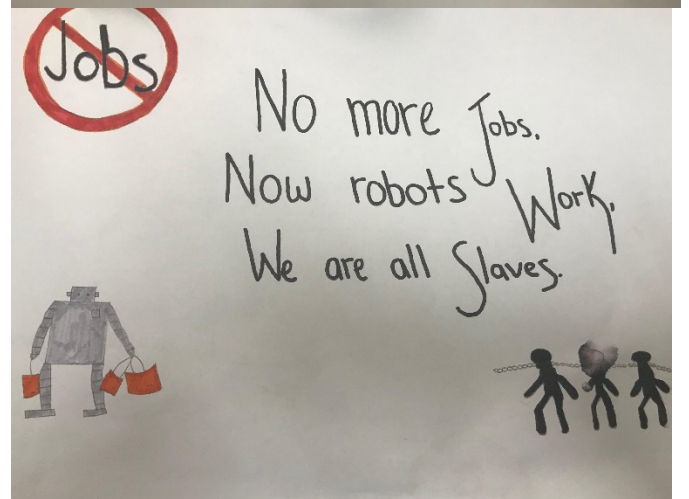 Jobs
No more Jobs.
Now robots Work.
We are all Slaves.